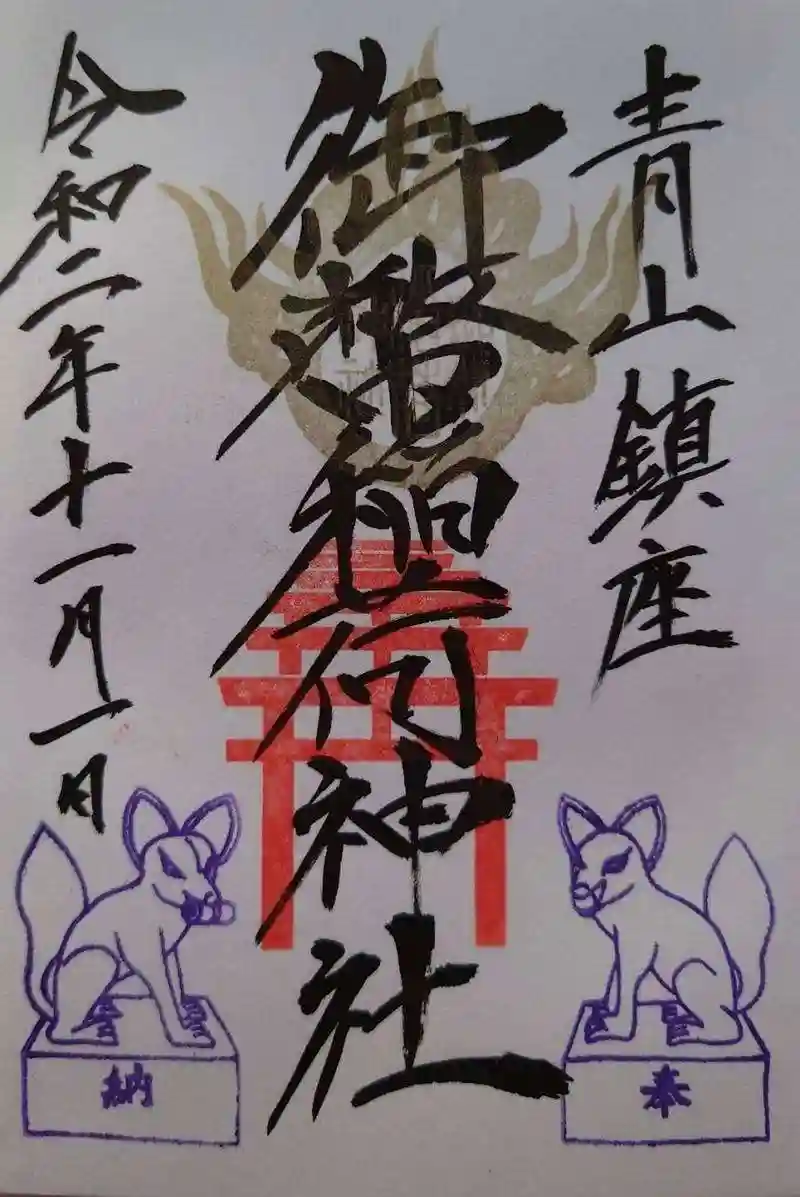 青山鎮座
御嶽稲荷神社
令和二年十一月一日
奉
納